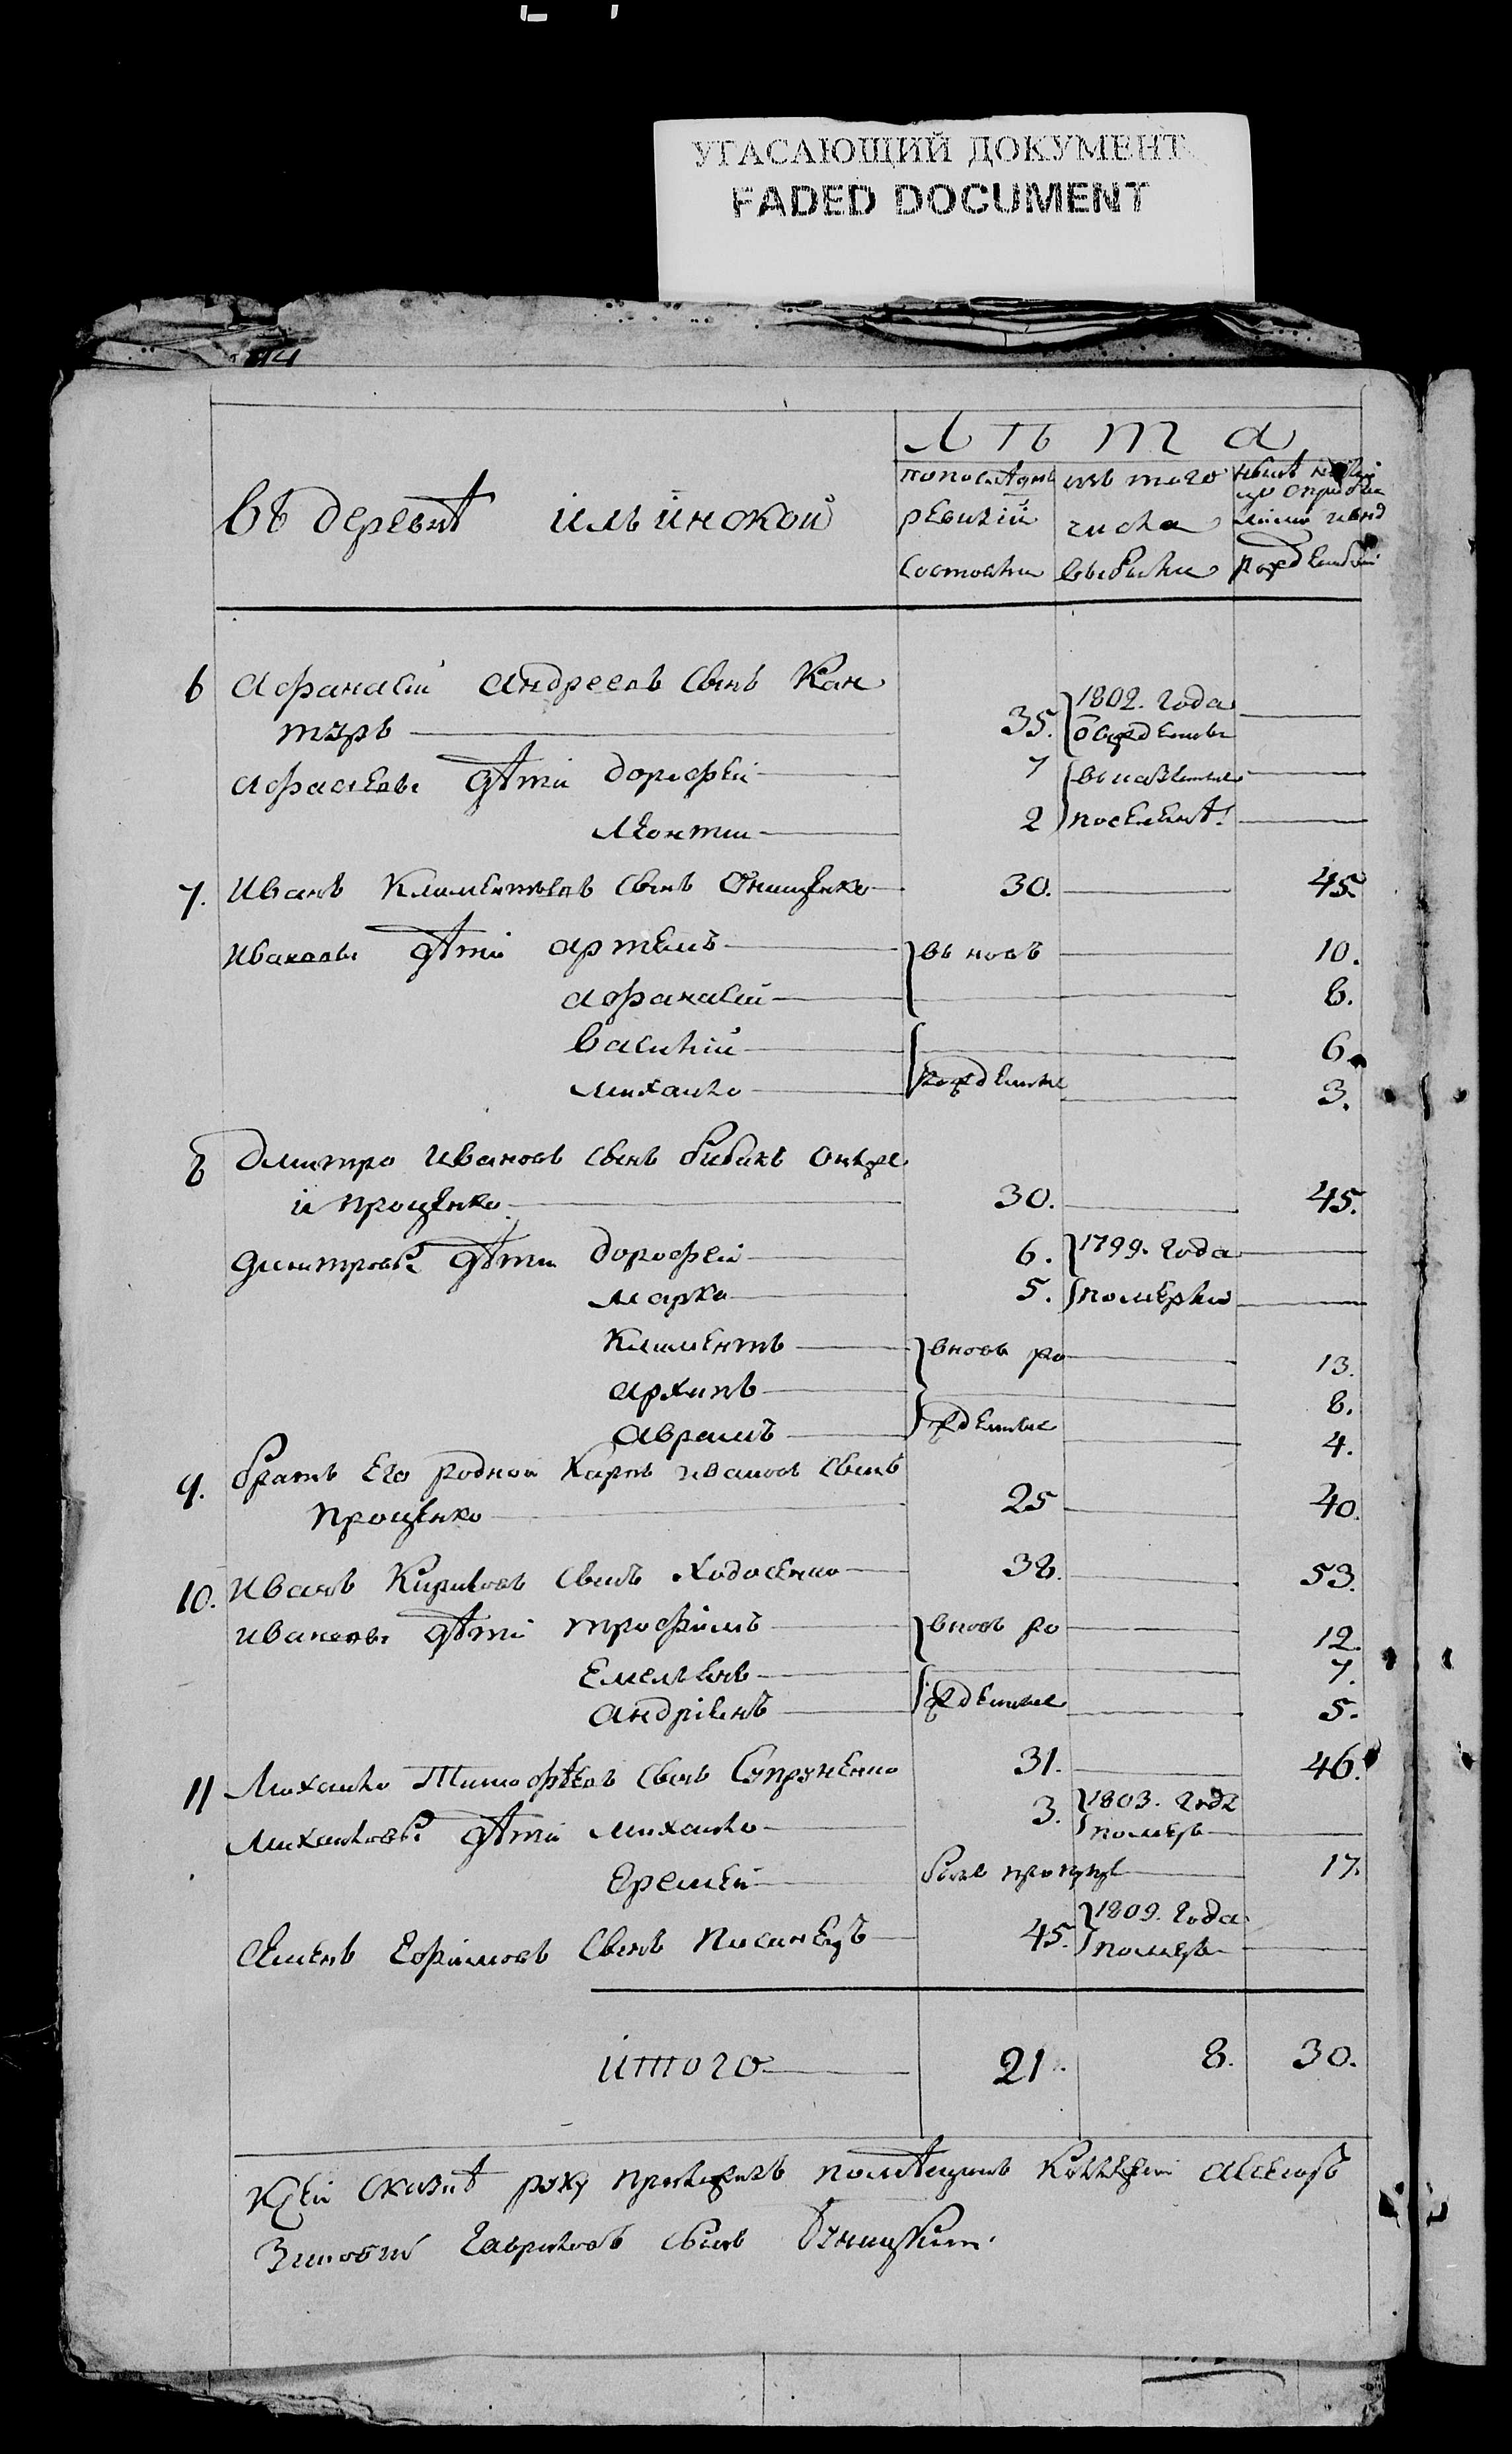 УГАСАЮЩИЙ ДОКУМЕНТ
FADED DOCUMENT
Лѣта
въ деревнѣ ильинской
попослѣдне ревизіи состояли
изъ того числа выбыли
6 афанасій андреевъ сынъ Кан
туръ 35. 1802. года
дѣти дорофѣй 7
леонтий 2 поселенiѣ
7. Иванъ Климентьевъ сынъ Онищенко 30. 45.
Ивановы дѣти артемъ вь новь 10.
афанасий 8.
василий 6.
михайло рожденные 3.
8 дмитро Ивановъ сынъ бибикъ онже
и проценко 30. 45.
дмитровы дѣти дорофей 6. 1799. года
марко 5. померли
Климентъ вновь ро 13.
архипъ 8.
аврамъ жденные 4.
9. братъ его родной Карпъ ивановъ сынъ
проценко 25 40.
10. Иванъ Кириловъ сынъ Ходосенко 38. 53.
ивановы дѣти трофимъ вновь ро 12.
Емельянъ 7.
андріянъ жденные 5.
11 Михайло Тимофѣевъ сынъ Супруненко 31. 46.
михайловы дѣти михайло 3. 1803. года померъ
Еремей 17.
Семенъ Ефимовъ сынъ Писанецъ 45. 1809. года померъ
итого 21. 8. 30.
Ксей сказкѣ руку приложилъ помѣщикъ асесоръ
Зиновий Гавриловъ сынъ